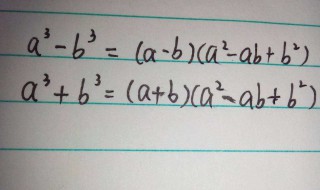 a³-b³= (a-b)(a²-ab+b²)
a³+b³= (a+b)(a²-ab+b²)